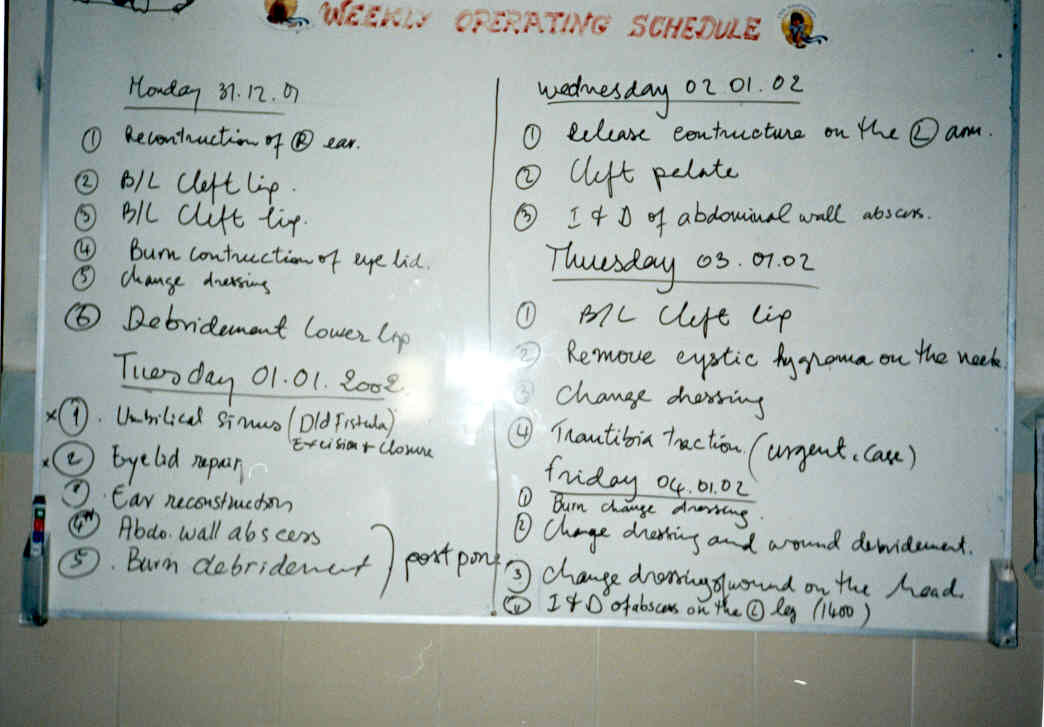 WEEKLY OPERATING SCHEDULE
Monday 31.12.01
① Recontruction of Ⓡ ear.
② B/L Cleft lip.
③ B/L Cleft lip.
④ Burn contruction of eye lid.
⑤ change dressing
⑥ Debridement lower lip
Tuesday 01.01.2002.
x ① . Umbilical Sinus (D/d Fistula)
Excision + Closure
x ② Eyelid repair
Ear reconstruction
④ Abdo. wall abscess
⑤ . Burn debridement ) postpone
Wednesday 02.01.02
① Release contructure on the Ⓛ arm.
② Cleft palate
③ I & D of abdominal wall abscess.
Thuesday 03.01.02
① B/L Cleft lip
② Remove cystic hygroma on the neck.
③ Change dressing
④ Trantibia traction (urgent, case)
friday 04.01.02
① Burn change dressing.
② Change dressing and wound debridement.
③ Change dressing of wound on the head.
④ I & D of abscess on the Ⓛ leg (1400)